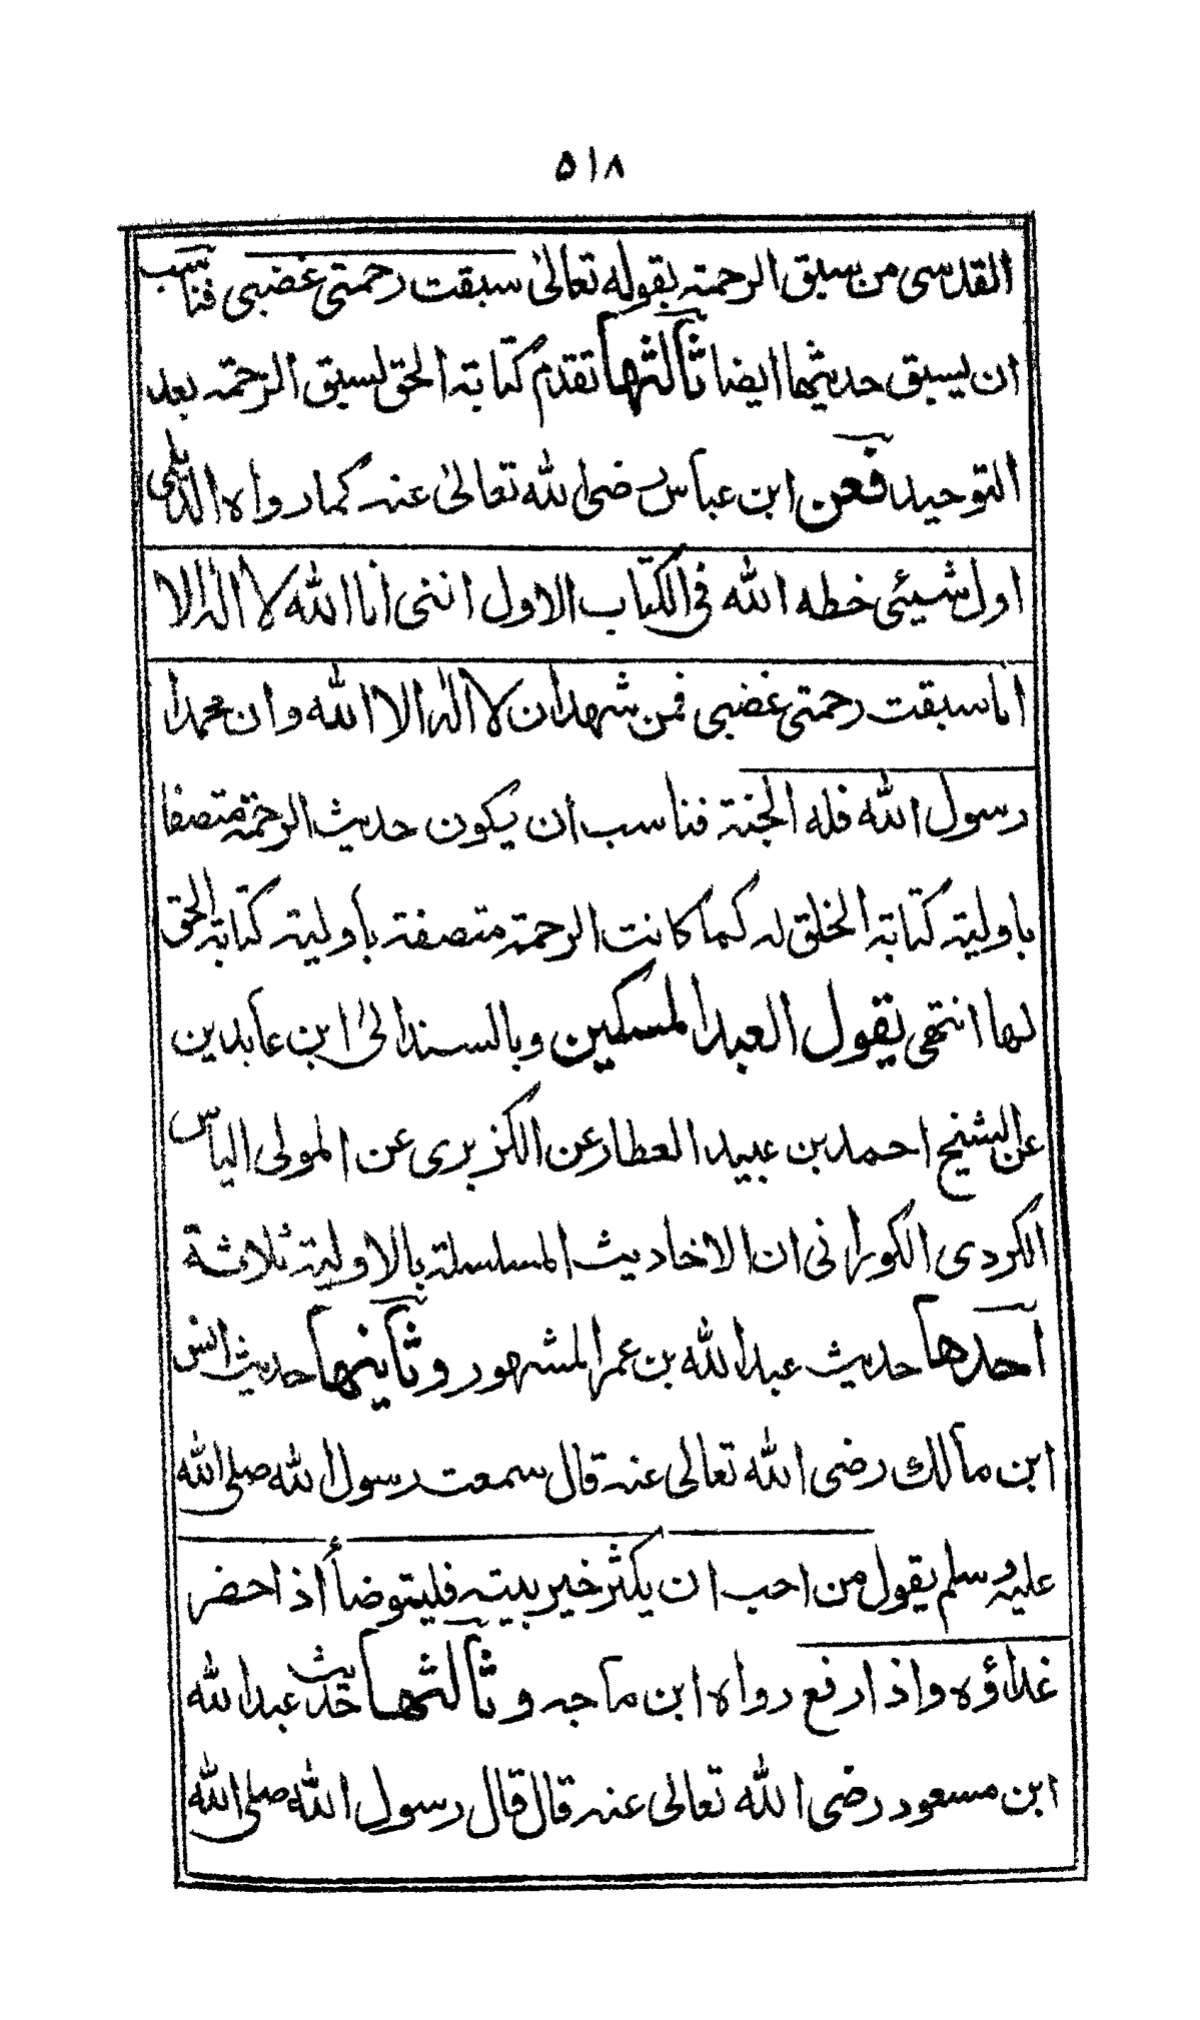 ٥١٨
القدسي من سبق الرحمة بقوله تعالىٰ سبقت رحمتي غضبي فناسب
ان يسبق حديثها ايضا ثالثها تقدم كتابة الحق لسبق الرحمة بعد
التوحيد فعن ابن عباس رضي الله تعالىٰ عنه كما رواه الديلمي
اول شيئي خطه الله في الكتاب الاول انني انا الله لا الٰه الا
انا سبقت رحمتي غضبي فمن شهد ان لا الٰه الا الله وان محمدا
رسول الله فله الجنة فناسب ان يكون حديث الرحمة متصفا
باولية كتابة الخلق له كما كانت الرحمة متصفة بأولية كتابة الحق
لها انتهى يقول العبد المسكين وبالسند الىٰ ابن عابدين
عن الشيخ احمد بن عبيد العطار عن الكزبرى عن المولى الياس
الكردى الكورانى ان الاخاديث المسلسلة بالاولية ثلاثة
احدها حديث عبد الله بن عمر المشهور وثانيها حديث انس
ابن مالك رضى الله تعالى عنه قال سمعت رسول الله صلى الله
عليه وسلم يقول من احب ان يكثر خير بيته فليتوضأ اذا حضر
غداؤه واذا رفع رواه ابن ماجه وثالثها حديث عبد الله
ابن مسعود رضى الله تعالى عنه قال قال رسول الله صلى الله